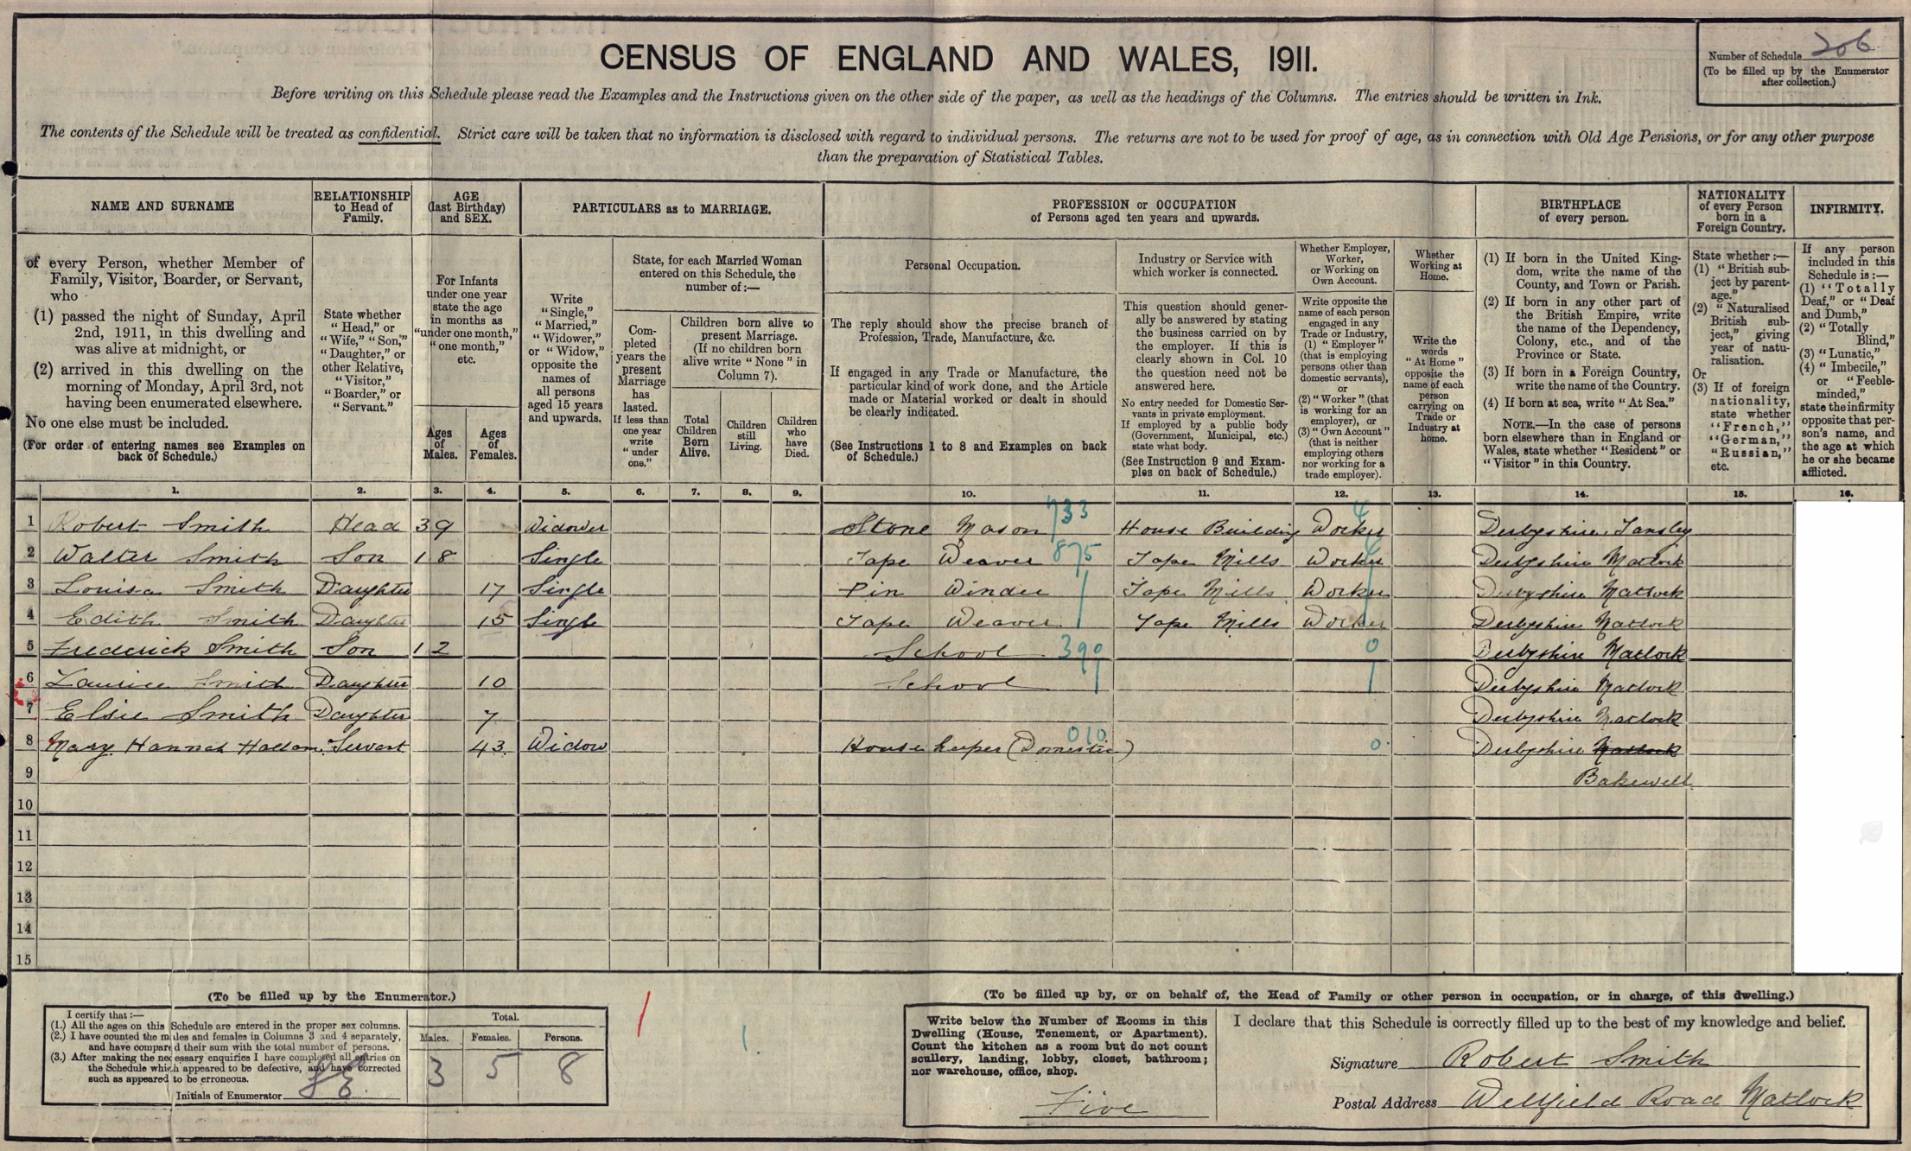 CENSUS OF ENGLAND AND WALES, 1911.
Number of Schedule 206
(To be filled up by the Enumerator
after collection.)
Before writing on this Schedule please read the Examples and the Instructions given on the other side of the paper, as well as the headings of the Columns. The entries should be written in Ink.
The contents of the Schedule will be treated as confidential. Strict care will be taken that no information is disclosed with regard to individual persons. The returns are not to be used for proof of age, as in connection with Old Age Pensions, or for any other purpose
than the preparation of Statistical Tables.
NAME AND SURNAME
of every Person, whether Member of
Family, Visitor, Boarder, or Servant,
who
(1) passed the night of Sunday, April
2nd, 1911, in this dwelling and
was alive at midnight, or
(2) arrived in this dwelling on the
morning of Monday, April 3rd, not
having been enumerated elsewhere.
No one else must be included.
(For order of entering names see Examples on
back of Schedule.)
RELATIONSHIP
to Head of
Family.
State whether
"Head," or
"Wife," "Son,"
"Daughter," or
other Relative,
"Visitor,"
"Boarder," or
"Servant."
AGE
(last Birthday)
and SEX.
For Infants
under one year
state the age
in months as
"under one month,"
"one month,"
etc.
Ages
of
Males.
Ages
of
Females.
PARTICULARS as to MARRIAGE.
Write
"Single,"
"Married,"
"Widower,"
or "Widow,"
opposite the
names of
all persons
aged 15 years
and upwards.
State, for each Married Woman
entered on this Schedule, the
number of:—
Com-
pleted
years the
present
Marriage
has
lasted.
If less than
one year
write
"under
one."
Children born alive to
present Marriage.
(If no children born
alive write "None" in
Column 7).
Total
Children
Born
Alive.
Children
still
Living.
Children
who
have
Died.
PROFESSION or OCCUPATION
of Persons aged ten years and upwards.
Personal Occupation.
The reply should show the precise branch of
Profession, Trade, Manufacture, &c.
If engaged in any Trade or Manufacture, the
particular kind of work done, and the Article
made or Material worked or dealt in should
be clearly indicated.
(See Instructions 1 to 8 and Examples on back
of Schedule.)
Industry or Service with
which worker is connected.
This question should gener-
ally be answered by stating
the business carried on by
the employer. If this is
clearly shown in Col. 10
the question need not be
answered here.
No entry needed for Domestic Ser-
vants in private employment.
If employed by a public body
(Government, Municipal, etc.)
state what body.
(See Instruction 9 and Exam-
ples on back of Schedule.)
Whether Employer,
Worker,
or Working on
Own Account.
Write opposite the
name of each person
engaged in any
Trade or Industry,
(1) "Employer"
(that is employing
persons other than
domestic servants),
or
(2) "Worker" (that
is working for an
employer), or
(3) "Own Account"
(that is neither
employing others
nor working for a
trade employer).
Whether
Working at
Home.
Write the
words
"At Home"
opposite the
name of each
person
carrying on
Trade or
Industry at
home.
BIRTHPLACE
of every person.
(1) If born in the United King-
dom, write the name of the
County, and Town or Parish.
(2) If born in any other part of
the British Empire, write
the name of the Dependency,
Colony, etc., and of the
Province or State.
(3) If born in a Foreign Country,
write the name of the Country.
(4) If born at sea, write "At Sea."
NOTE.—In the case of persons
born elsewhere than in England or
Wales, state whether "Resident" or
"Visitor" in this Country.
NATIONALITY
of every Person
born in a
Foreign Country.
State whether:—
(1) "British sub-
ject by parent-
age."
(2) "Naturalised
British sub-
ject," giving
year of natu-
ralisation.
Or
(3) If of foreign
nationality,
state whether
"French,"
"German,"
"Russian,"
etc.
INFIRMITY.
If any person
included in this
Schedule is:—
(1) "Totally
Deaf," or "Deaf
and Dumb,"
(2) "Totally
Blind,"
(3) "Lunatic,"
(4) "Imbecile,"
or "Feeble-
minded,"
state the infirmity
opposite that per-
son's name, and
the age at which
he or she became
afflicted.
1. 2. 3. 4. 5. 6. 7. 8. 9. 10. 11. 12. 13. 14. 15. 16.
1 Robert Smith Head 39 Widower Stone Mason 733 House Building Worker Derbyshire, Tansley
2 Walter Smith Son 18 Single Tape Weaver 875 Tape Mills Worker Derbyshire Matlock
3 Louisa Smith Daughter 17 Single Pin Winder Tape Mills Worker Derbyshire Matlock
4 Edith Smith Daughter 15 Single Tape Weaver Tape Mills Worker Derbyshire Matlock
5 Frederick Smith Son 12 School 390 0 Derbyshire Matlock
6 Smith Daughter 10 School Derbyshire Matlock
7 Elsie Smith Daughter 7 Derbyshire Matlock
8 Mary Hannah Hallam Servant 43 Widow House keeper (Domestic) 010 0 Derbyshire Matlock
9 Bakewell
10
11
12
13
14
15
(To be filled up by the Enumerator.)
I certify that:—
(1.) All the ages on this Schedule are entered in the proper sex columns.
(2.) I have counted the males and females in Columns 3 and 4 separately,
and have compared their sum with the total number of persons.
(3.) After making the necessary enquiries I have completed all entries on
the Schedule which appeared to be defective, and have corrected
such as appeared to be erroneous.
Initials of Enumerator
Total.
Males. Females. Persons.
3 5 8
(To be filled up by, or on behalf of, the Head of Family or other person in occupation, or in charge, of this dwelling.)
Write below the Number of Rooms in this
Dwelling (House, Tenement, or Apartment).
Count the kitchen as a room but do not count
scullery, landing, lobby, closet, bathroom;
nor warehouse, office, shop.
Five
I declare that this Schedule is correctly filled up to the best of my knowledge and belief.
Signature Robert Smith
Postal Address Wellfield Road Matlock